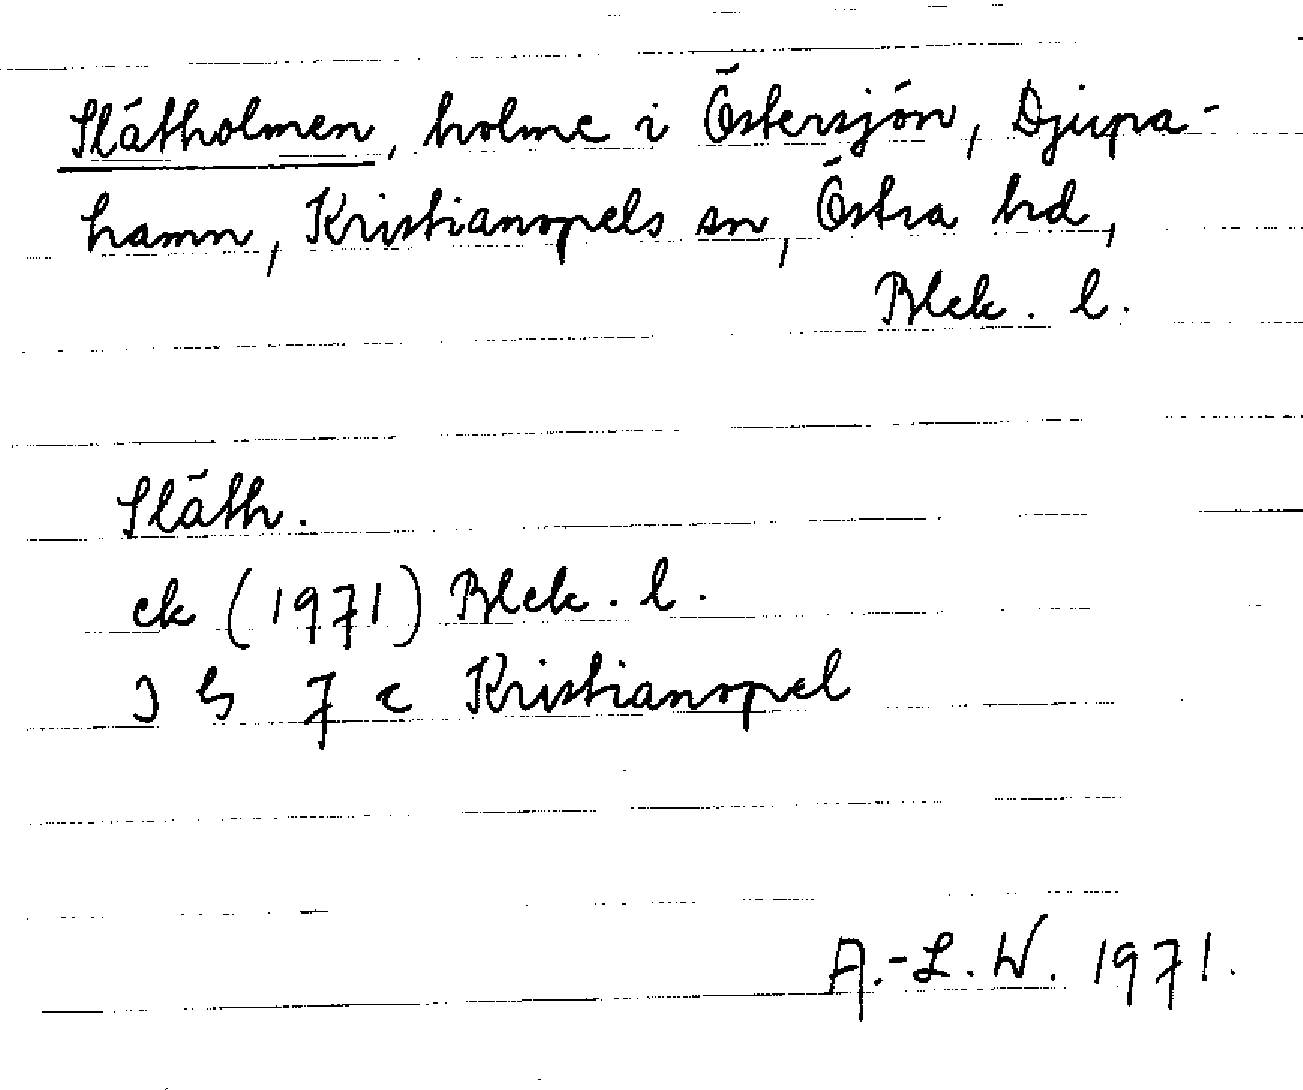 Slätholmen, holme i Östersjön, Djupa-
hamn, Kristianopels sn, Östra hd,
Blek. l.
Släth.
ek (1971) Blek. l.
3 G 7 c Kristianopel
A.-L. W. 1971.